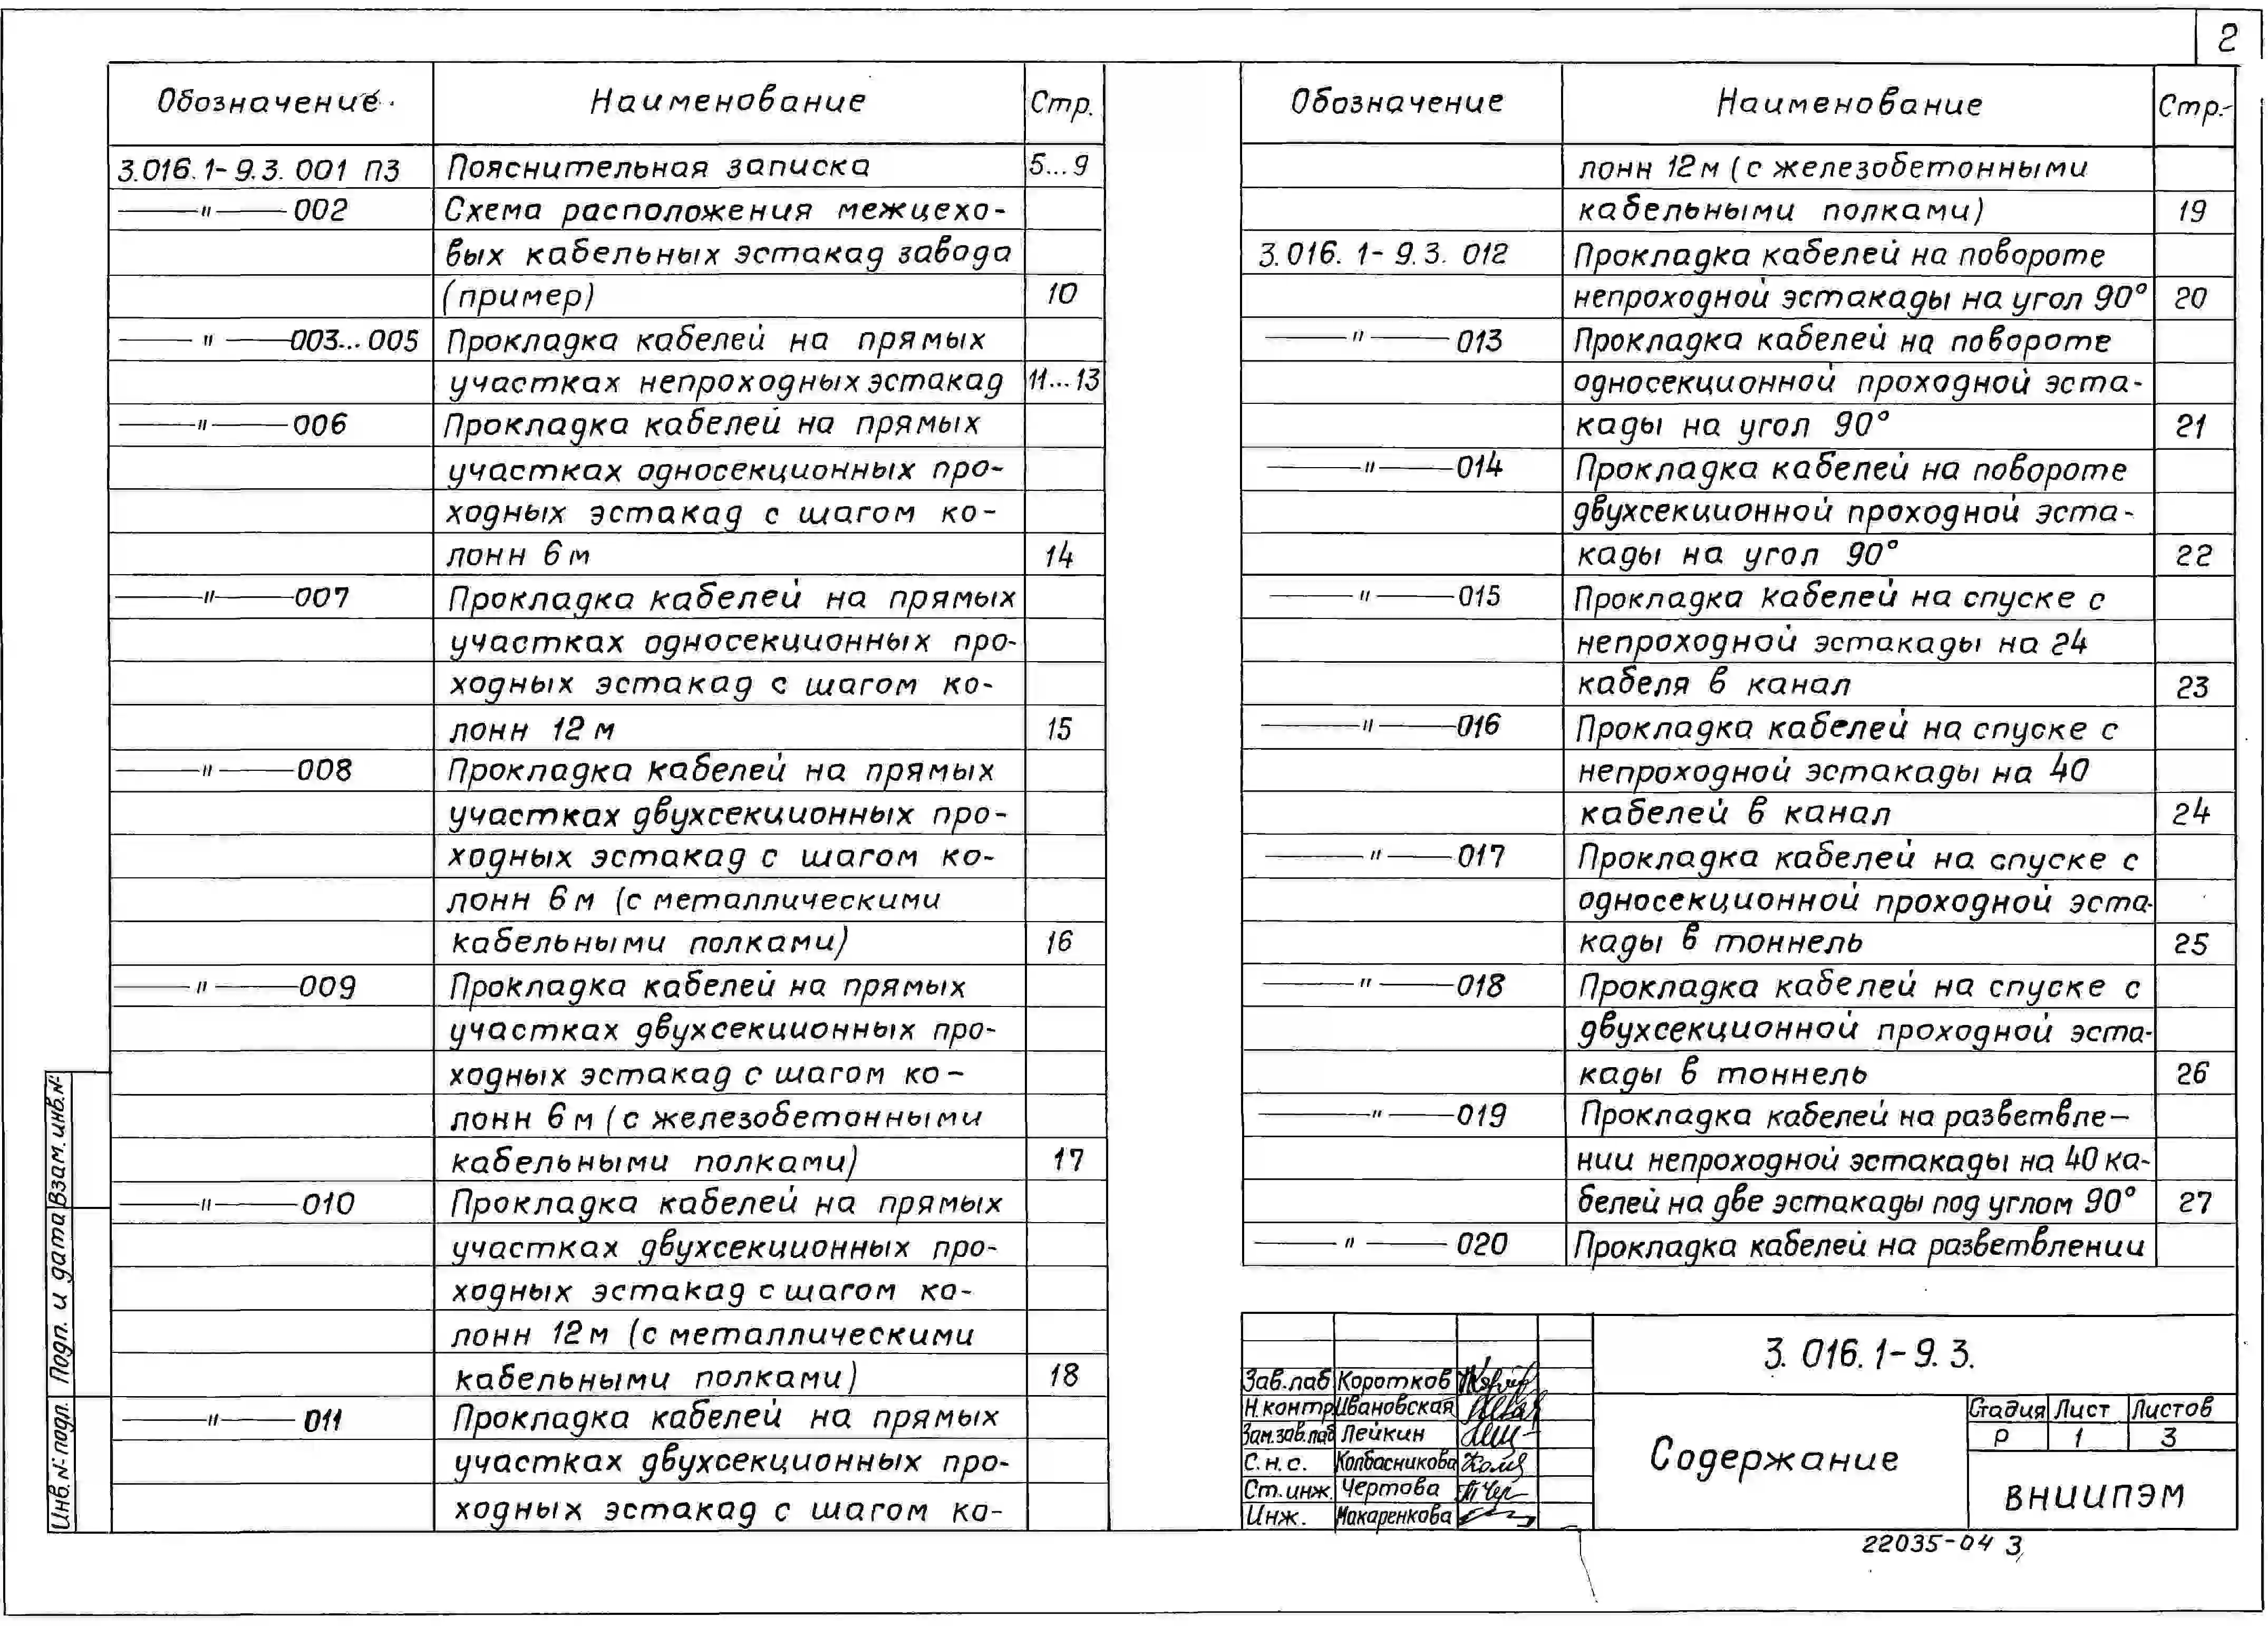 2
Обозначение Наименование Стр.
3.016.1-9.3. 001 ПЗ Пояснительная записка 5...9
—"— 002 Схема расположения межцехо-
вых кабельных эстакад завода
(пример) 10
—"— 003...005 Прокладка кабелей на прямых
участках непроходных эстакад 11...13
—"— 006 Прокладка кабелей на прямых
участках односекционных про-
ходных эстакад с шагом ко-
лонн 6 м 14
—"— 007 Прокладка кабелей на прямых
участках односекционных про-
ходных эстакад с шагом ко-
лонн 12 м 15
—"— 008 Прокладка кабелей на прямых
участках двухсекционных про-
ходных эстакад с шагом ко-
лонн 6 м (с металлическими
кабельными полками) 16
—"— 009 Прокладка кабелей на прямых
участках двухсекционных про-
ходных эстакад с шагом ко-
лонн 6 м (с железобетонными
кабельными полками) 17
—"— 010 Прокладка кабелей на прямых
участках двухсекционных про-
ходных эстакад с шагом ко-
лонн 12 м (с металлическими
кабельными полками) 18
—"— 011 Прокладка кабелей на прямых
участках двухсекционных про-
ходных эстакад с шагом ко-
Обозначение Наименование Стр.
лонн 12 м (с железобетонными
кабельными полками) 19
3.016.1-9.3. 012 Прокладка кабелей на повороте
непроходной эстакады на угол 90° 20
—"— 013 Прокладка кабелей на повороте
односекционной проходной эста-
кады на угол 90° 21
—"— 014 Прокладка кабелей на повороте
двухсекционной проходной эста-
кады на угол 90° 22
—"— 015 Прокладка кабелей на спуске с
непроходной эстакады на 24
кабеля в канал 23
—"— 016 Прокладка кабелей на спуске с
непроходной эстакады на 40
кабелей в канал 24
—"— 017 Прокладка кабелей на спуске с
односекционной проходной эста-
кады в тоннель 25
—"— 018 Прокладка кабелей на спуске с
двухсекционной проходной эста-
кады в тоннель 26
—"— 019 Прокладка кабелей на разветвле-
нии непроходной эстакады на 40 ка-
белей на две эстакады под углом 90° 27
—"— 020 Прокладка кабелей на разветвлении
Взам. инв. №
Подп. и дата
Инв. № подл.
3.016.1-9.3.
Зав. лаб Коротков
Н. контр Ивановская
Зам. зав. лаб Лейкин
С. н. с. Колбасникова
Ст. инж. Чертова
Инж. Макаренкова
Содержание
Стадия Лист Листов
Р 1 3
ВНИИПЭМ
22035-04 3